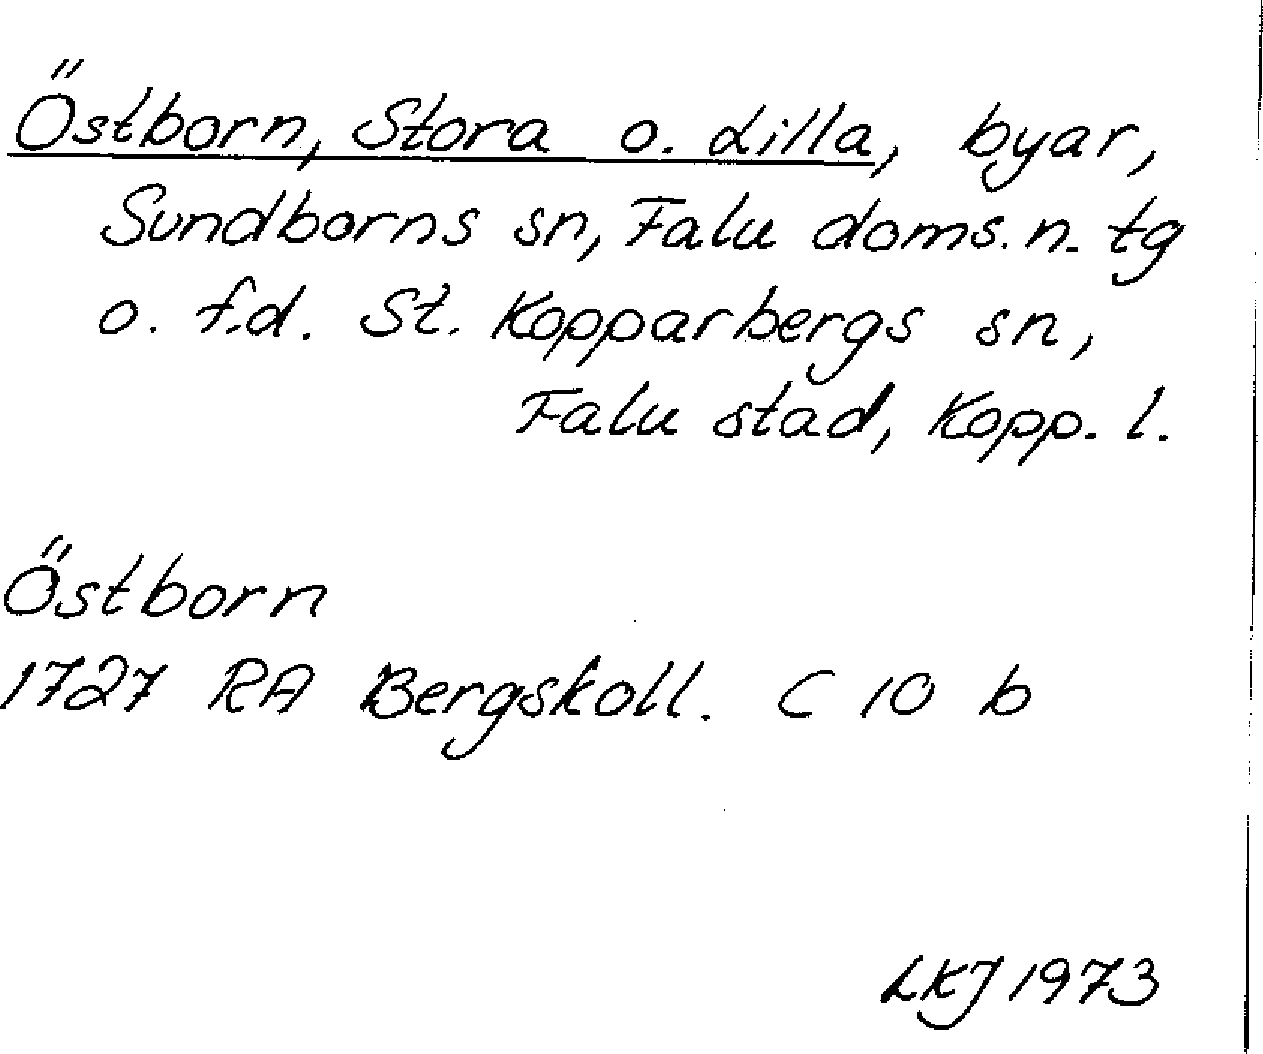 Östborn, Stora o. Lilla, byar,
Sundborns sn, Falu doms. n. tg
o. f.d. St. Kopparbergs sn,
Falu stad, Kopp. l.
Östborn
1727 RA Bergskoll. C 10 b
LKJ 1973